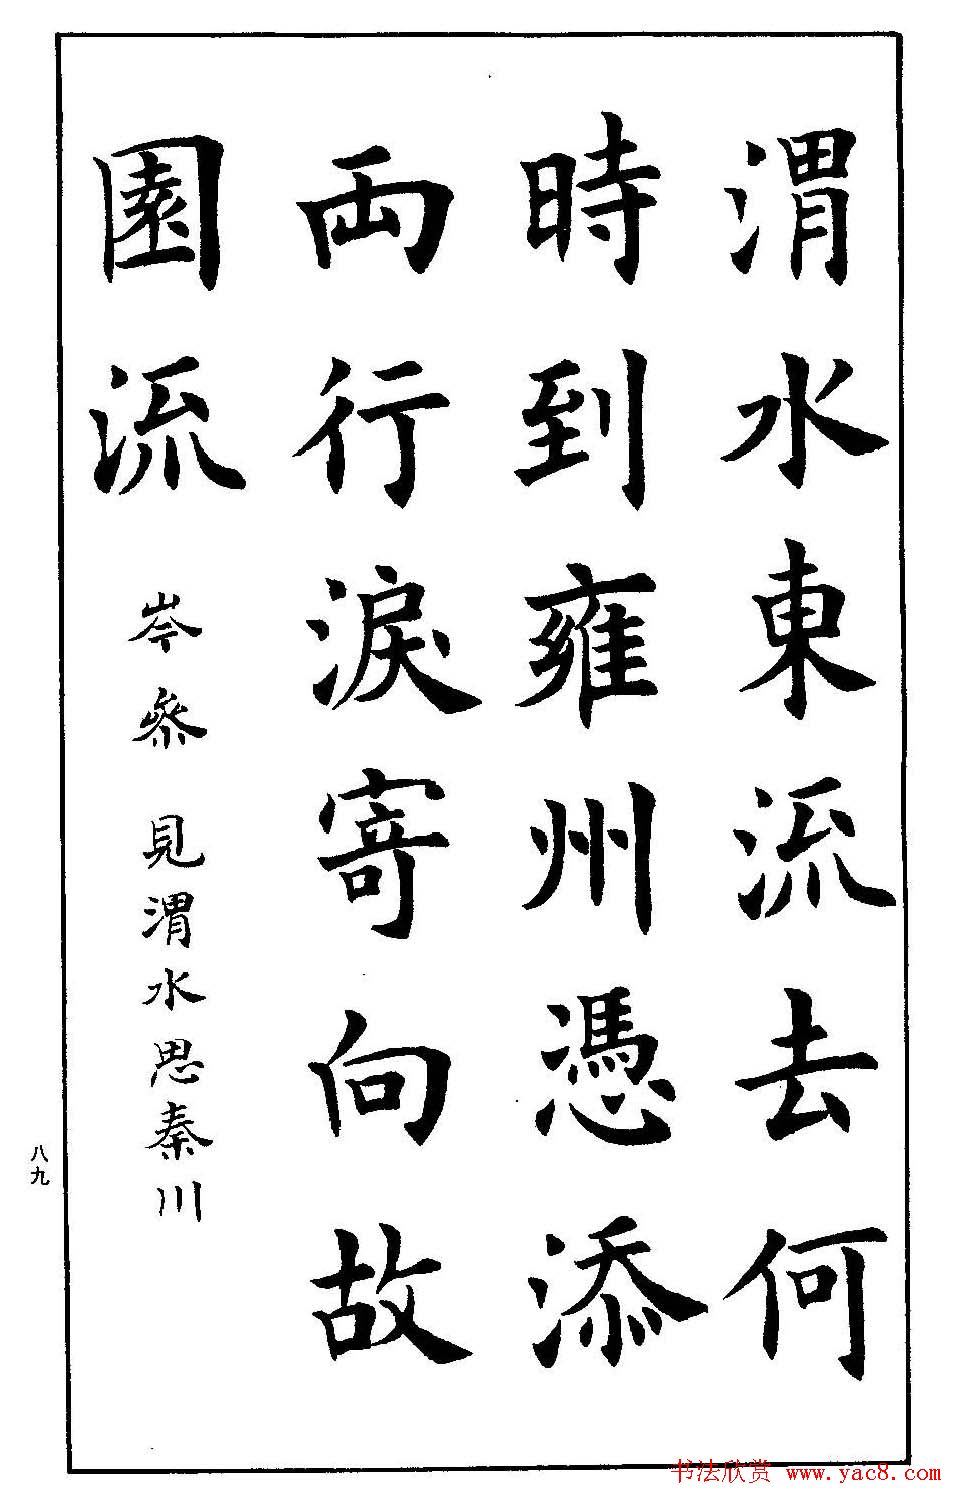 渭水東流去何
時到雍州憑添
兩行淚寄向故
園流
岑參 見渭水思秦川
八九
书法欣赏 www.yac8.com